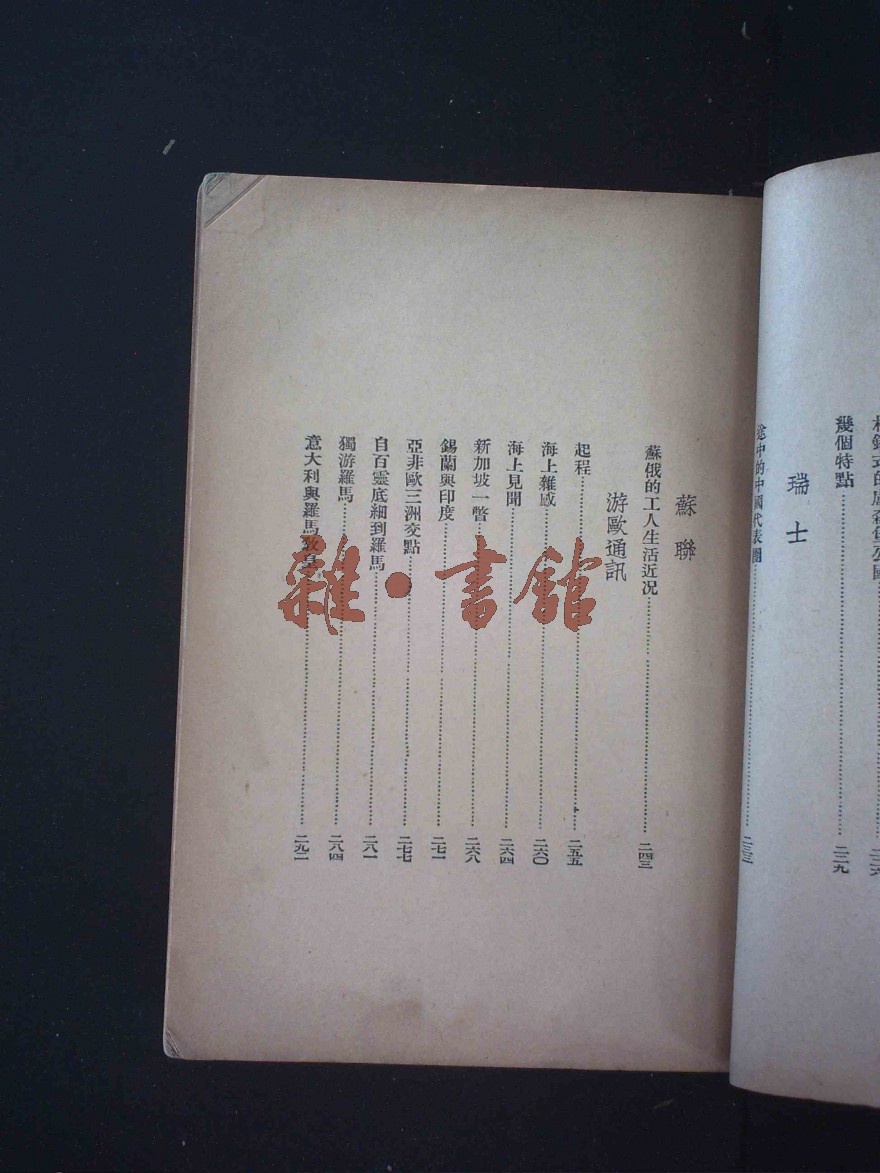 幾個特點……二二九
瑞士
途中的中國代表團……二三三
蘇聯
蘇俄的工人生活近况……二四三
游歐通訊
起程……二五五
海上雜感……二六〇
海上見聞……二六四
新加坡一瞥……二六八
錫蘭與印度……二七一
亞非歐三洲交點……二七七
自百靈底細到羅馬……二八一
獨游羅馬……二八四
意大利與羅馬教皇……二九二
雜·書館